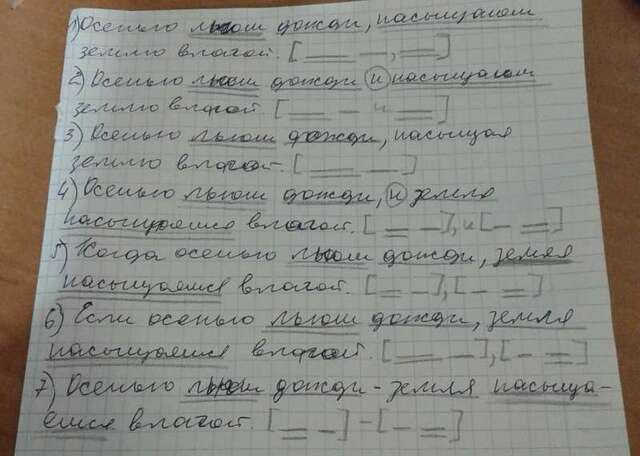 1) Осенью льют дожди, насыщают
землю влагой. [ == — , == ]
2) Осенью льют дожди и насыщают
землю влагой [ == — и == ]
3) Осенью льют дожди, насыщая
землю влагой. [ == — ]
4) Осенью льют дожди, и земля
насыщается влагой. [ == — ], и [ — == ]
5) Когда осенью льют дожди, земля
насыщается влагой. [ == — ], [ — == ]
6) Если осенью льют дожди, земля
насыщается влагой. [ == — ], [ — == ]
7) Осенью льют дожди - земля насыща-
ется влагой. [ == — ] - [ — == ]